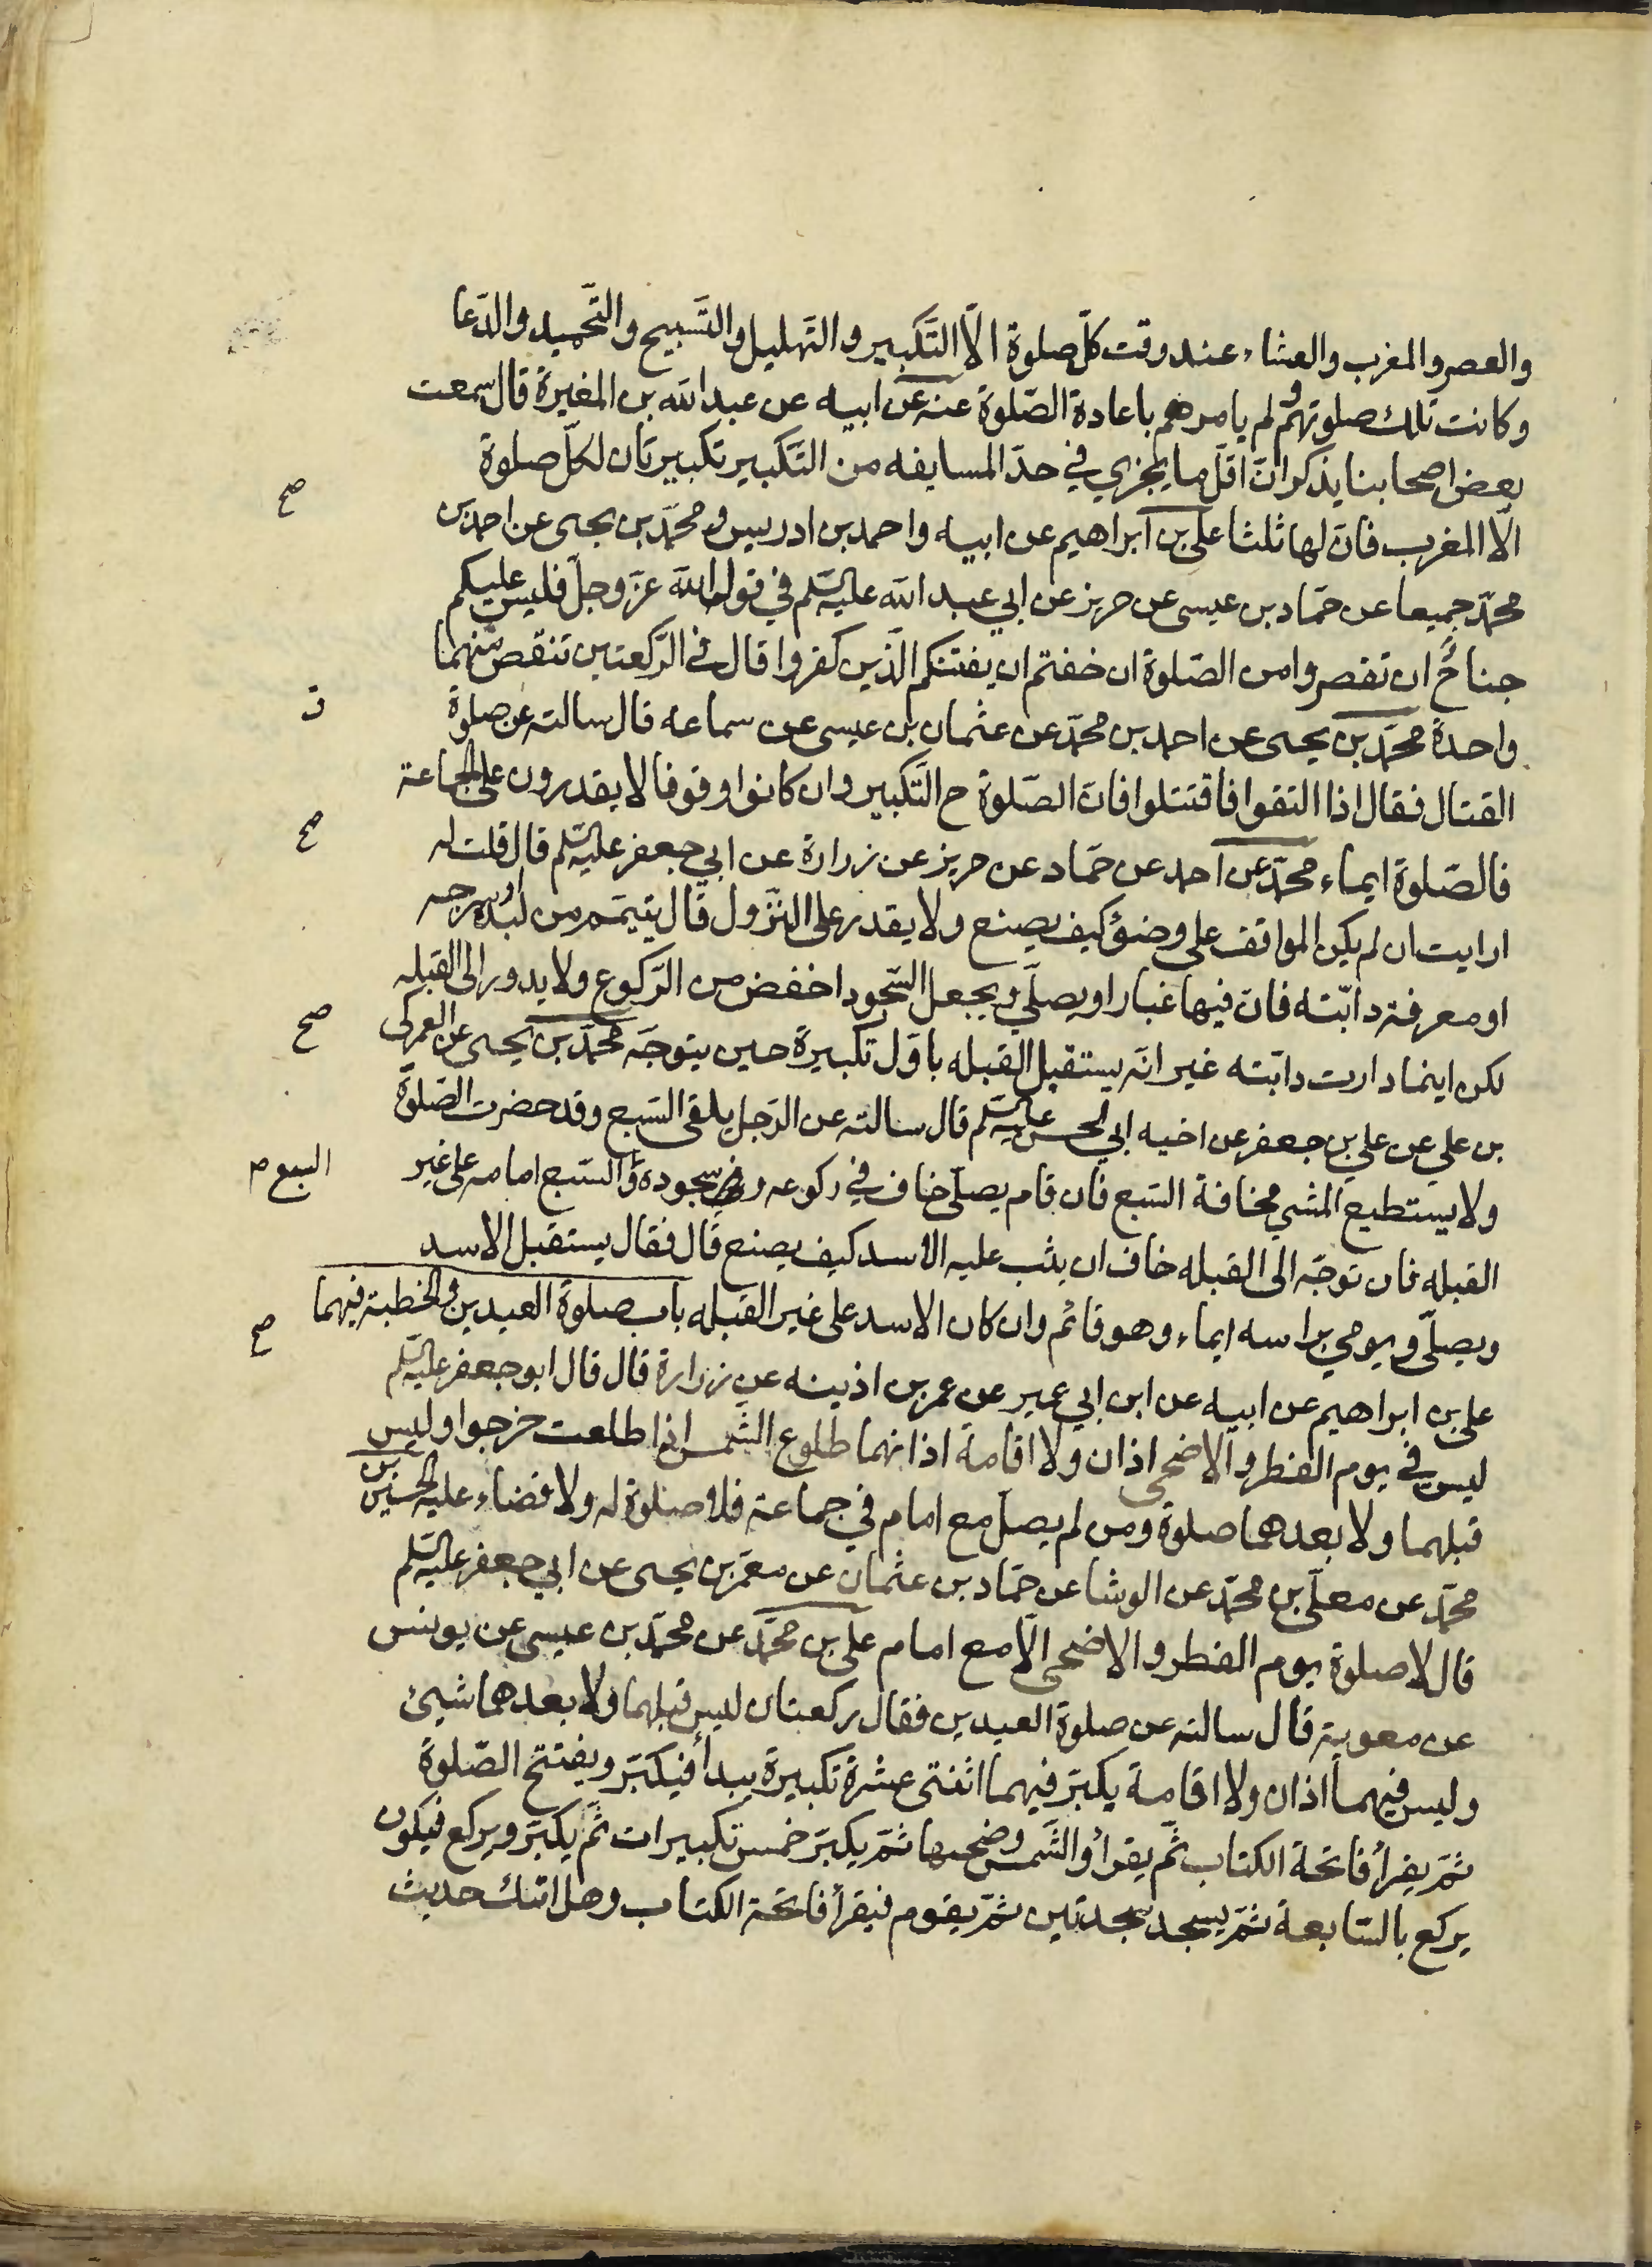 والعصر والمغرب والعشاء عند وقت كلّ صلوة الّا التّكبير والتّهليل والتّسبيح والتّحميد والدّعا
وكانت تلك صلوتهم ولم يامرهم باعادة الصّلوة عنه عن ابيه عن عبدالله بن المغيرة قال سمعت
بعض اصحابنا يذكر انّ اقلّ ما يجزي في حدّ المسايفه من التّكبير تكبيرتان لكلّ صلوة
صح
الّا المغرب فانّ لها ثلثا علي بن ابراهيم عن ابيه واحمد بن ادريس ومحمّد بن يحيى عن احمد بن
محمّد جميعا عن حمّاد بن عيسى عن حريز عن ابي عبدالله عليه السّلم في قول الله عزّ وجلّ فليس عليكم
جناح ان تقصروا من الصّلوة ان خفتم ان يفتنكم الّذين كفروا قال في الرّكعتين تنقص منهما
ق
واحدة محمّد بن يحيى عن احمد بن محمّد عن عثمان بن عيسى عن سماعه قال سالته عن صلوة
القتال فقال اذا التقوا فاقتتلوا فانّ الصّلوة ح التّكبير وان كانوا وقوفا لا يقدرون على الجماعة
صح
فالصّلوة ايماء محمّد عن احمد عن حمّاد عن حريز عن زرارة عن ابي جعفر عليه السّلم قال قلت له
ارايت ان لم يكن المواقف على وضوء كيف يصنع ولا يقدر على النّزول قال يتيمّم من لبده او سرجه
او معرفة دابّته فانّ فيها غبارا ويصلّي ويجعل السّجود اخفض من الرّكوع ولا يدور الى القبله
صح
لكن اينما دارت دابّته غير انّه يستقبل القبله باوّل تكبيرة حين يتوجّه محمّد بن يحيى عن العمركي
بن علي عن علي بن جعفر عن اخيه ابي الحسن عليه السّلم قال سالته عن الرّجل يلقى السّبع وقد حضرت الصّلوة
ولا يستطيع المشي مخافة السّبع فان قام يصلّي خاف في ركوعه وفي سجوده والسّبع امامه على غير
السبع م
القبله فان توجّه الى القبله خاف ان يثب عليه الاسد كيف يصنع قال فقال يستقبل الاسد
ويصلّي ويومي براسه ايماء وهو قائم وان كان الاسد على غير القبله باب صلوة العيدين والخطبة فيهما
صح
علي بن ابراهيم عن ابيه عن ابن ابي عمير عن عمر بن اذينه عن زرارة قال قال ابو جعفر عليه السّلم
ليس في يوم الفطر والاضحى اذان ولا اقامة اذانهما طلوع الشّمس اذا طلعت خرجوا وليس
قبلهما ولا بعدهما صلوة ومن لم يصلّ مع امام في جماعة فلا صلوة له ولا قضاء عليه الحسين بن
محمّد عن معلّى بن محمّد عن الوشا عن حمّاد بن عثمان عن معمّر بن يحيى عن ابي جعفر عليه السّلم
قال لا صلوة يوم الفطر والاضحى الّا مع امام علي بن محمّد عن محمّد بن عيسى عن يونس
عن معوية قال سالته عن صلوة العيدين فقال ركعتان ليس قبلهما ولا بعدهما شيئ
وليس فيهما اذان ولا اقامة يكبّر فيهما اثنتي عشرة تكبيرة يبدأ فيكبّر ويفتتح الصّلوة
ثمّ يقرأ فاتحة الكتاب ثمّ يقرأ والشّمس وضحيها ثمّ يكبّر خمس تكبيرات ثمّ يكبّر ويركع فيكون
يركع بالسّابعة ثمّ يسجد سجدتين ثمّ يقوم فيقرأ فاتحة الكتاب وهل اتيك حديث